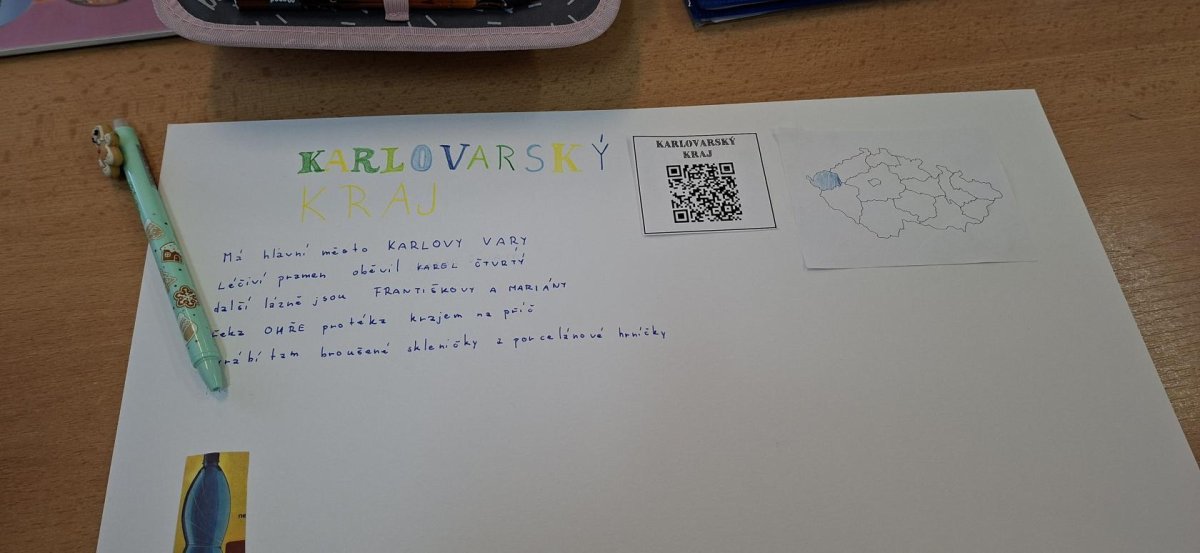 KARLOVARSKÝ
KRAJ
KARLOVARSKÝ
KRAJ
Má hlavní město KARLOVY VARY
Léčiví pramen oběvil KAREL ČTVRTÝ
další lázně jsou FRANTIŠKOVY A MARIÁNY
řeka OHŘE protéká krajem na příč
broušené skleničky a porcelánové hrníčky